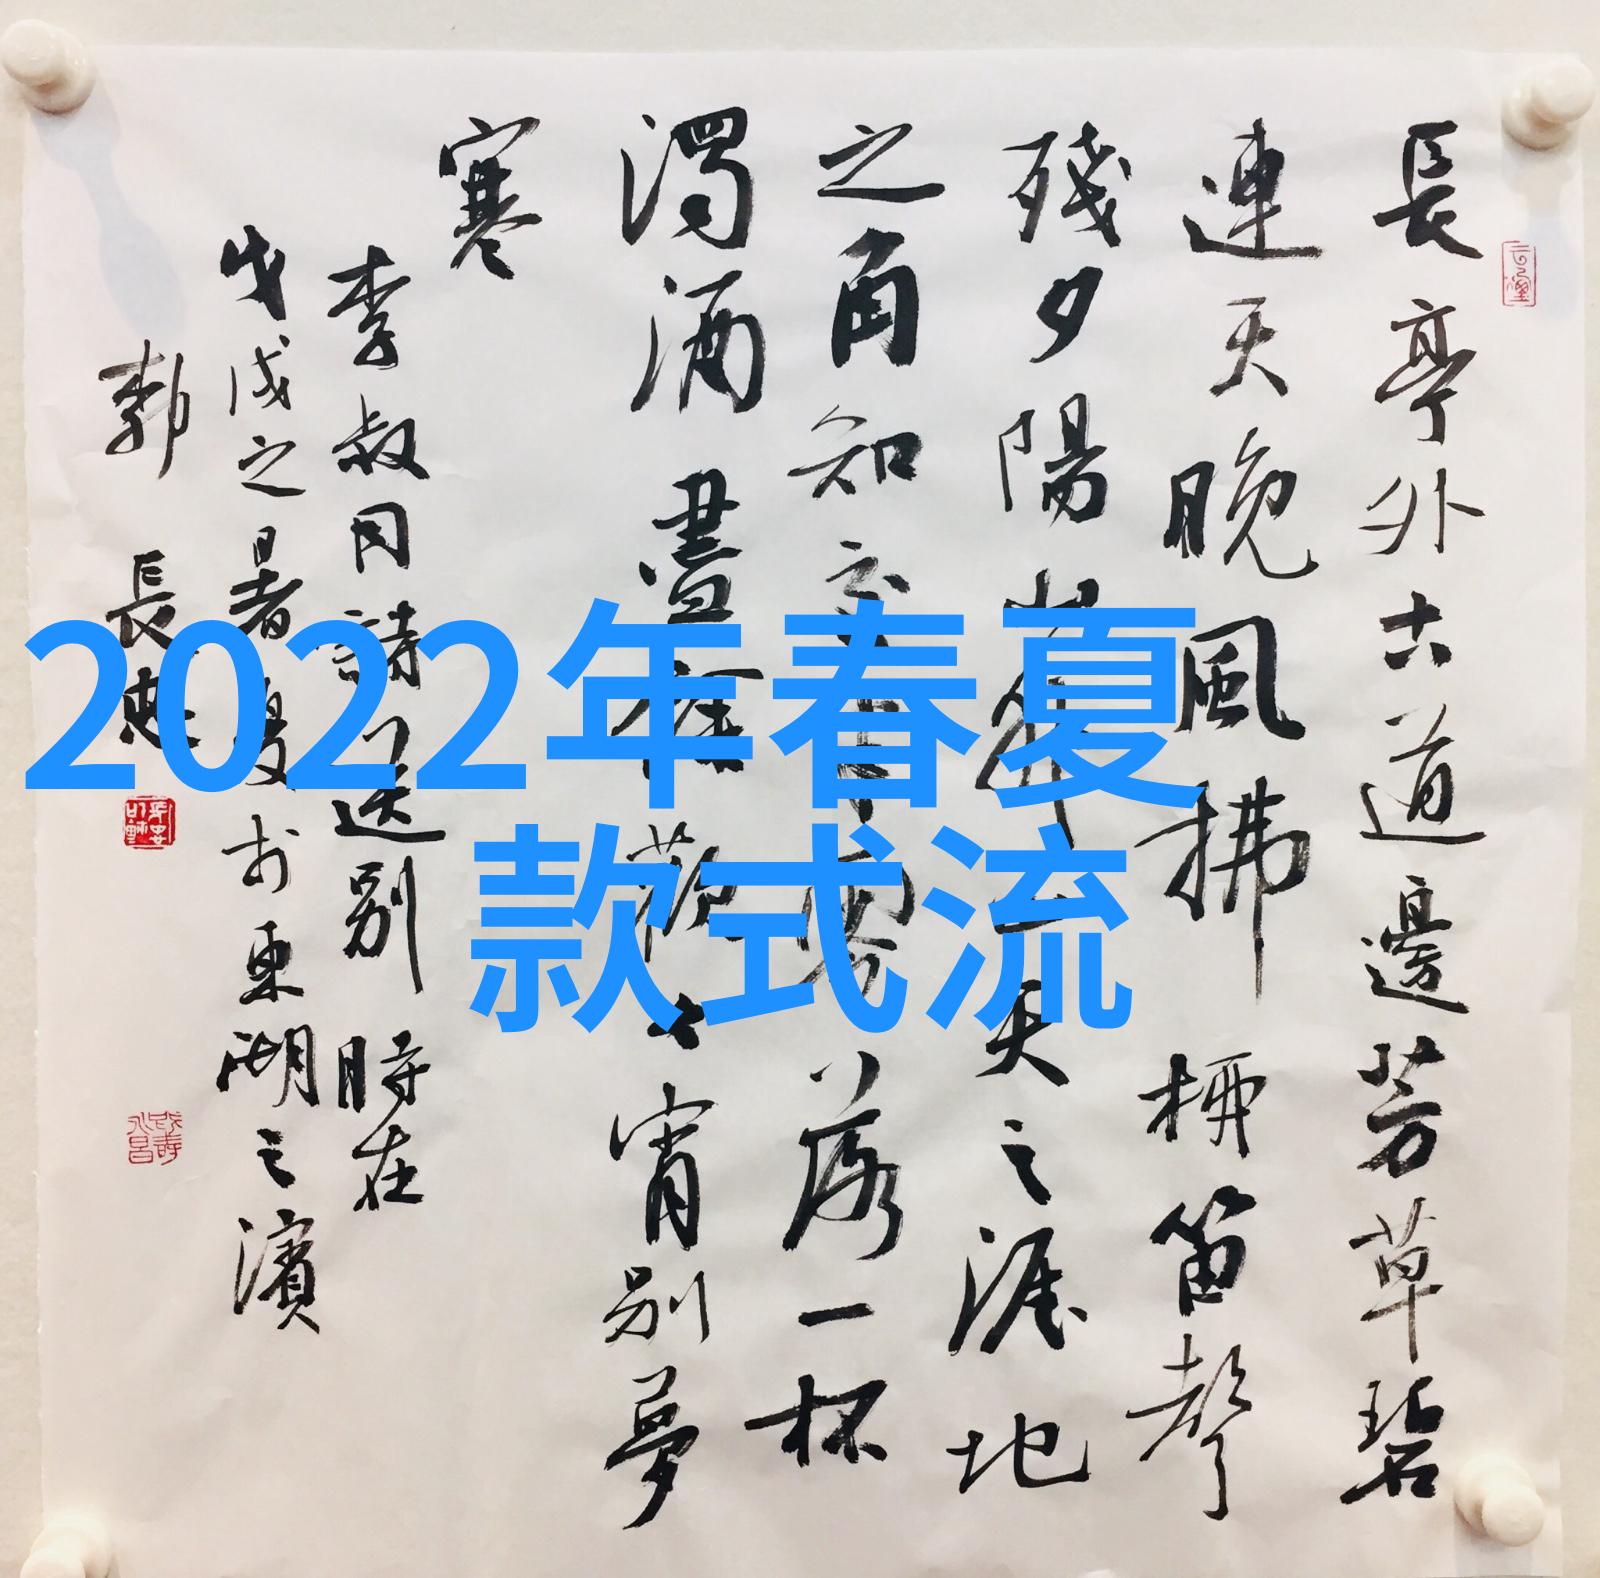 長亭外古道邊芳草碧
連天晚風拂柳笛聲
殘夕陽山外山天之涯地
之角知交半零落一杯
濁酒盡餘歡今宵別夢
寒
李叔同詩送別 時在
戊戌之暑夏於東湖之濱
郭 長忠
2022年春夏
款式流